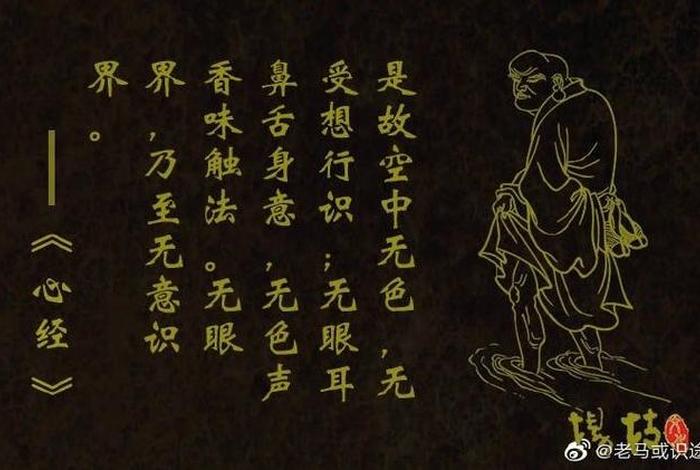 是故空中无色，无
受想行识；无眼耳
鼻舌身意，无色声
香味触法。无眼
界，乃至无意识
界。
——《心经》
@老马或识途